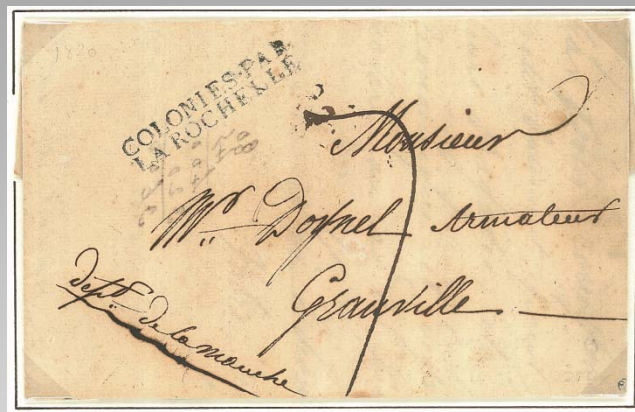 1820
COLONIES·PAR
LA ROCHELLE
Monsieur
Mr Doynel Armateur
Granville
dept de la manche
7